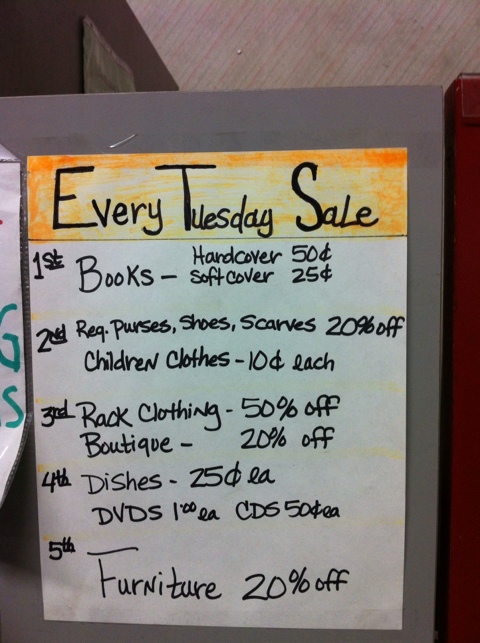 Every Tuesday Sale
1st Books - Hardcover 50¢
Softcover 25¢
2nd Reg. Purses, Shoes, Scarves 20% off
Children Clothes - 10¢ each
3rd Rack Clothing - 50% off
Boutique - 20% off
4th Dishes - 25¢ ea
DVDS 1.00 ea CDS 50¢ ea
5th
Furniture 20% off
G
S